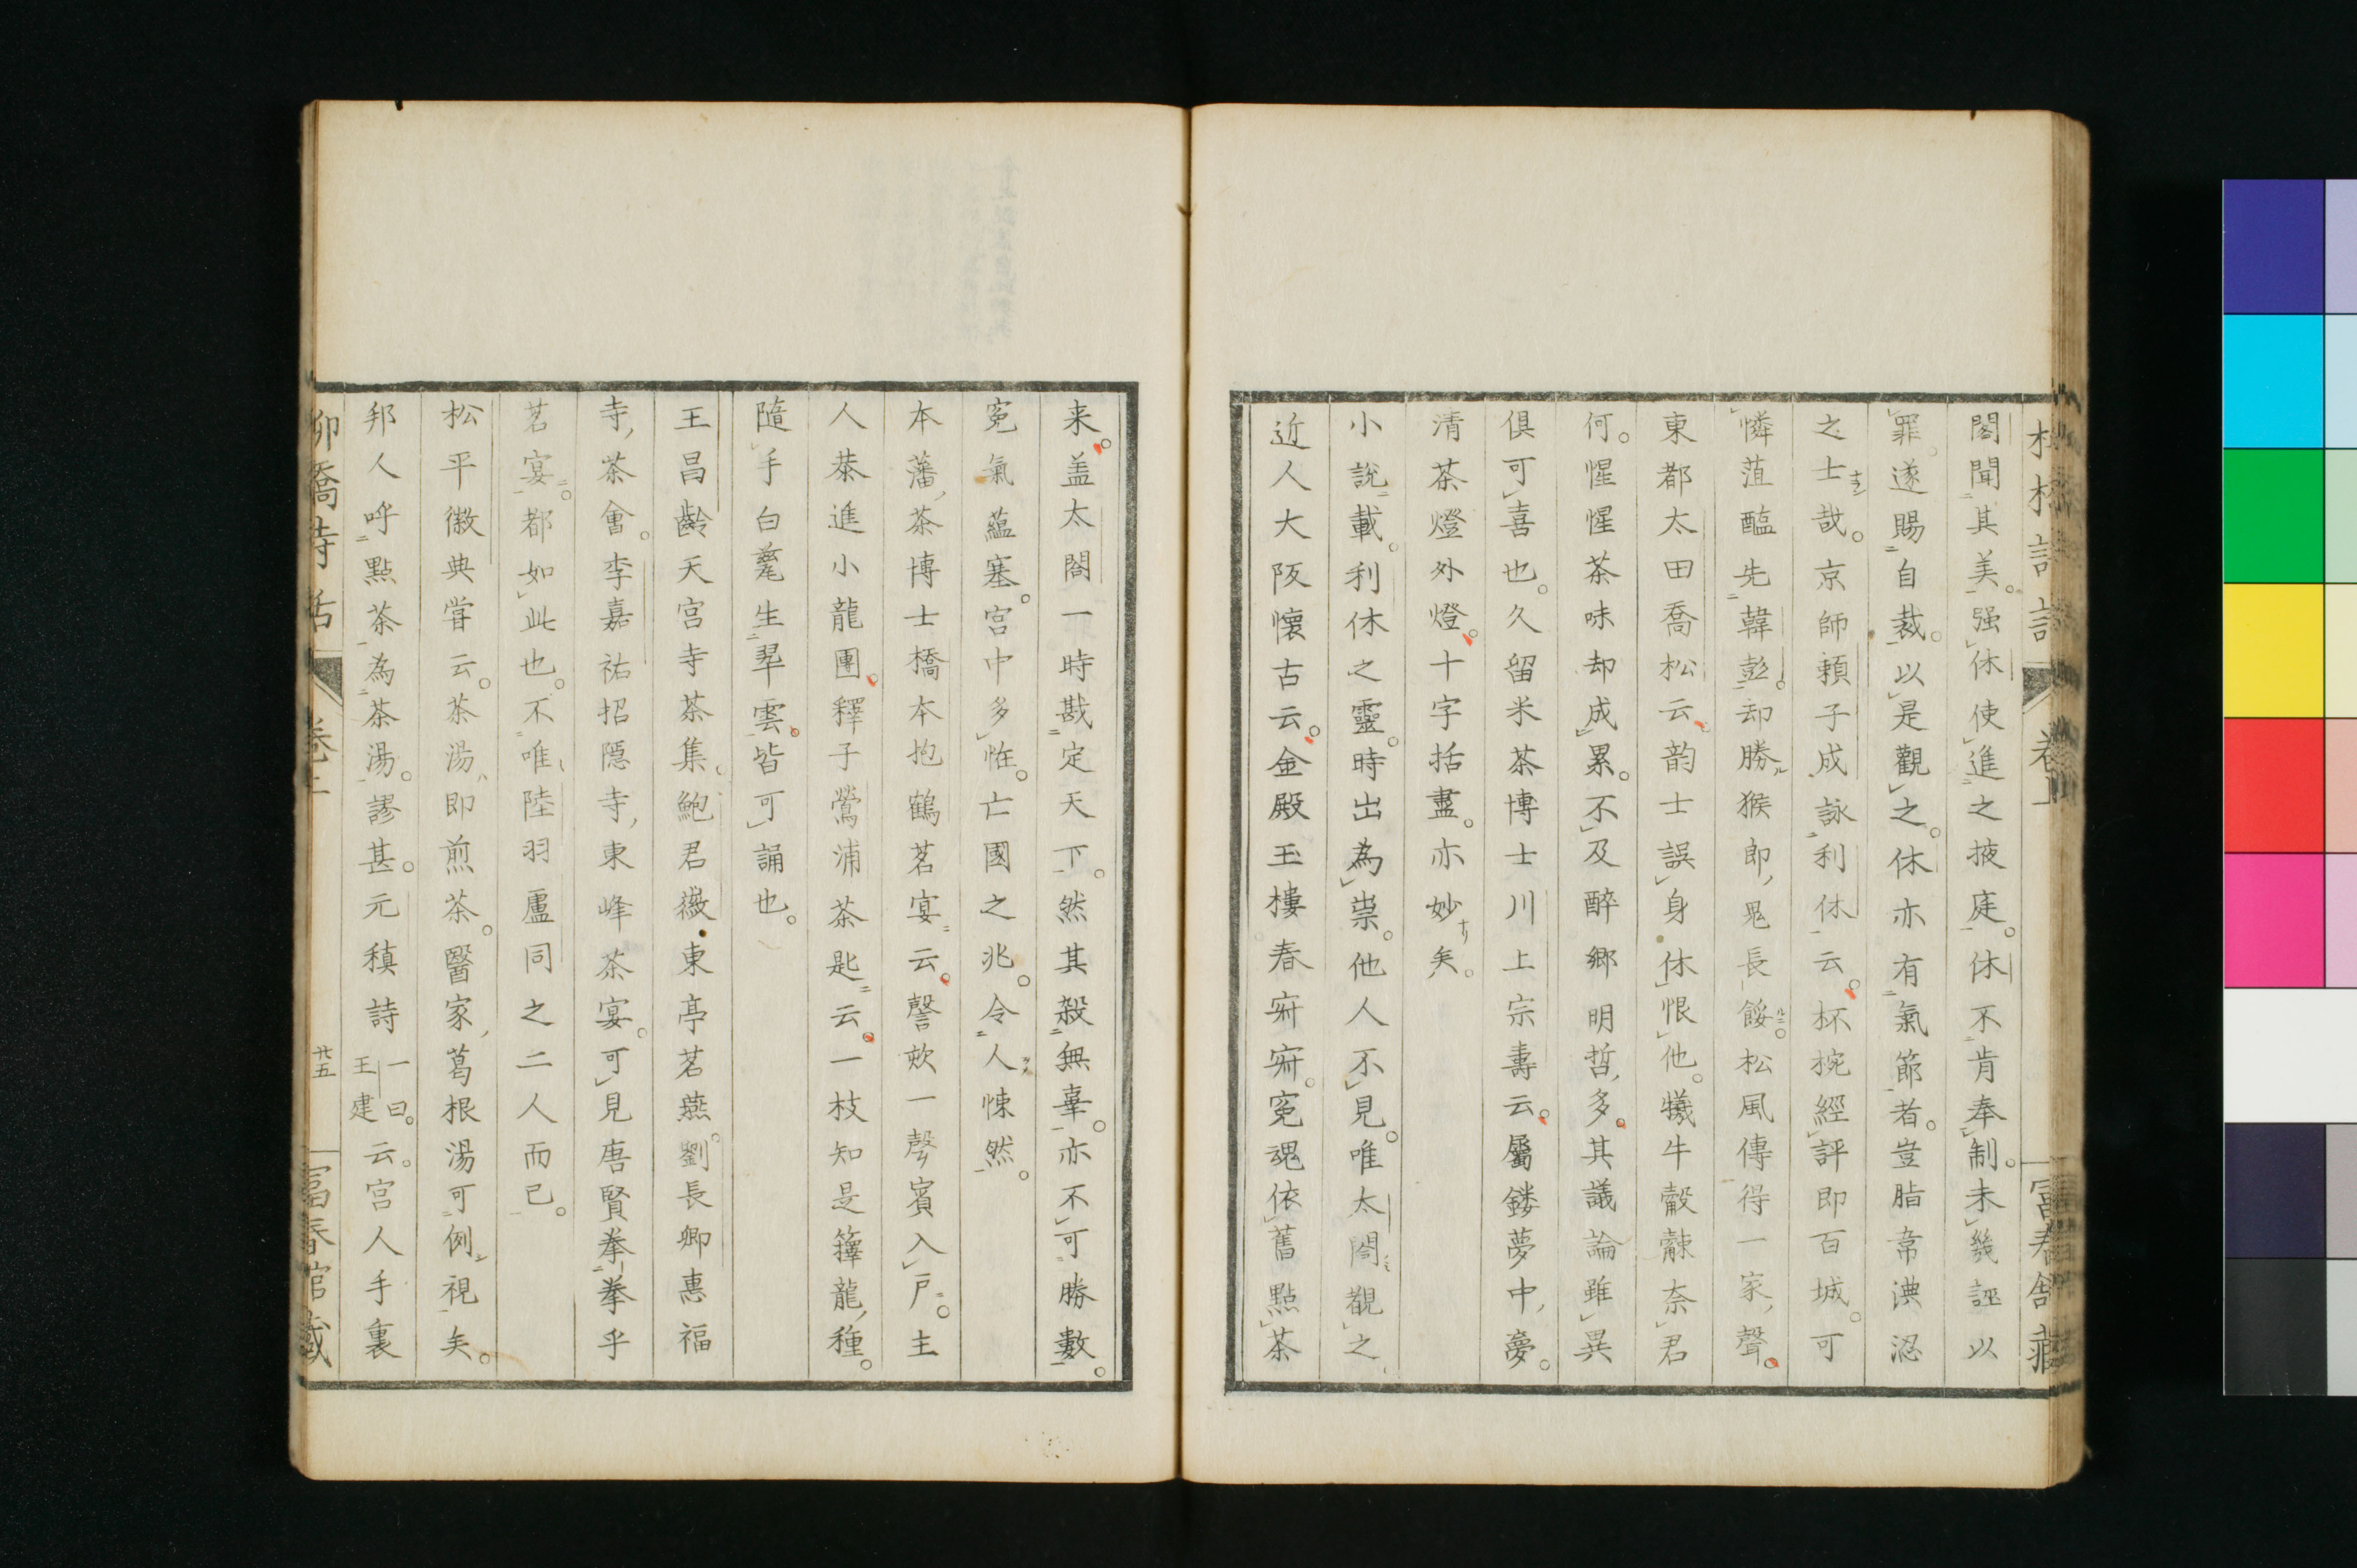 閣聞其美。强休使進之掖庭。休不肯奉制。未幾誣以
罪。遂賜自裁。以是觀之。休亦有氣節者。豈脂韋淟涊
之士哉。京師頼子成詠利休云。杯椀經評即百城。可
憐菹醢先韓彭。却勝猴郎,鬼長餒。松風傳得一家,聲。
東都太田喬松云。韵士誤身休恨他。犠牛觳觫奈君
何。惺惺茶味却成累。不及醉郷明哲,多。其議論雖異
倶可喜也。久留米茶博士川上宗壽云。屬鏤夢中,夢。
清茶燈外燈。十字括盡。亦妙矣。
小説載。利休之靈。時出為祟。他人不見。唯太閤覩之
近人大阪懷古云。金殿玉樓春寂寂。寃魂依舊點茶
来。盖太閤一時戡定天下。然其殺無辜。亦不可勝數。
寃氣蘊塞。宮中多恠。亡國之兆。令人悚然。
本藩,茶博士橋本抱鶴茗宴云。謦欬一聲賓入戸。主
人恭進小龍團。釋子鶯浦茶匙云。一枝知是籜龍,種。
隨手白毫生翠雲。皆可誦也。
王昌齡天宮寺茶集。鮑君徽東亭茗燕。劉長卿惠福
寺,茶會。李嘉祐招隠寺,東峰茶宴。可見唐賢拳拳乎
茗宴。都如此也。不唯陸羽盧同之二人而已。
松平徽典甞云。茶湯即煎茶。醫家,葛根湯可例視矣。
邦人呼點茶為茶湯。謬甚。元稹詩 一曰。王建 云。宮人手裏
柳橋詩話 卷上 廿五 富春館藏